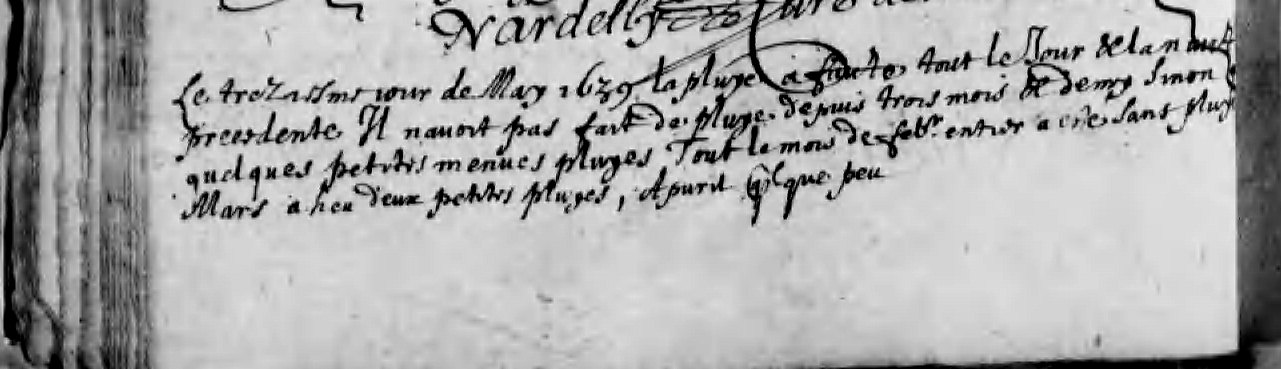 Nardelly
Le treziesme iour de May 1639 la pluye a tout le Jour & la nuit
precedente Il navoit pas fait de pluye depuis trois mois & demy sinon
quelques petites menues pluyes Tout le mois de febr entier a esté sans pluye
Mars a heu deux petites pluyes, Apuril quelque peu